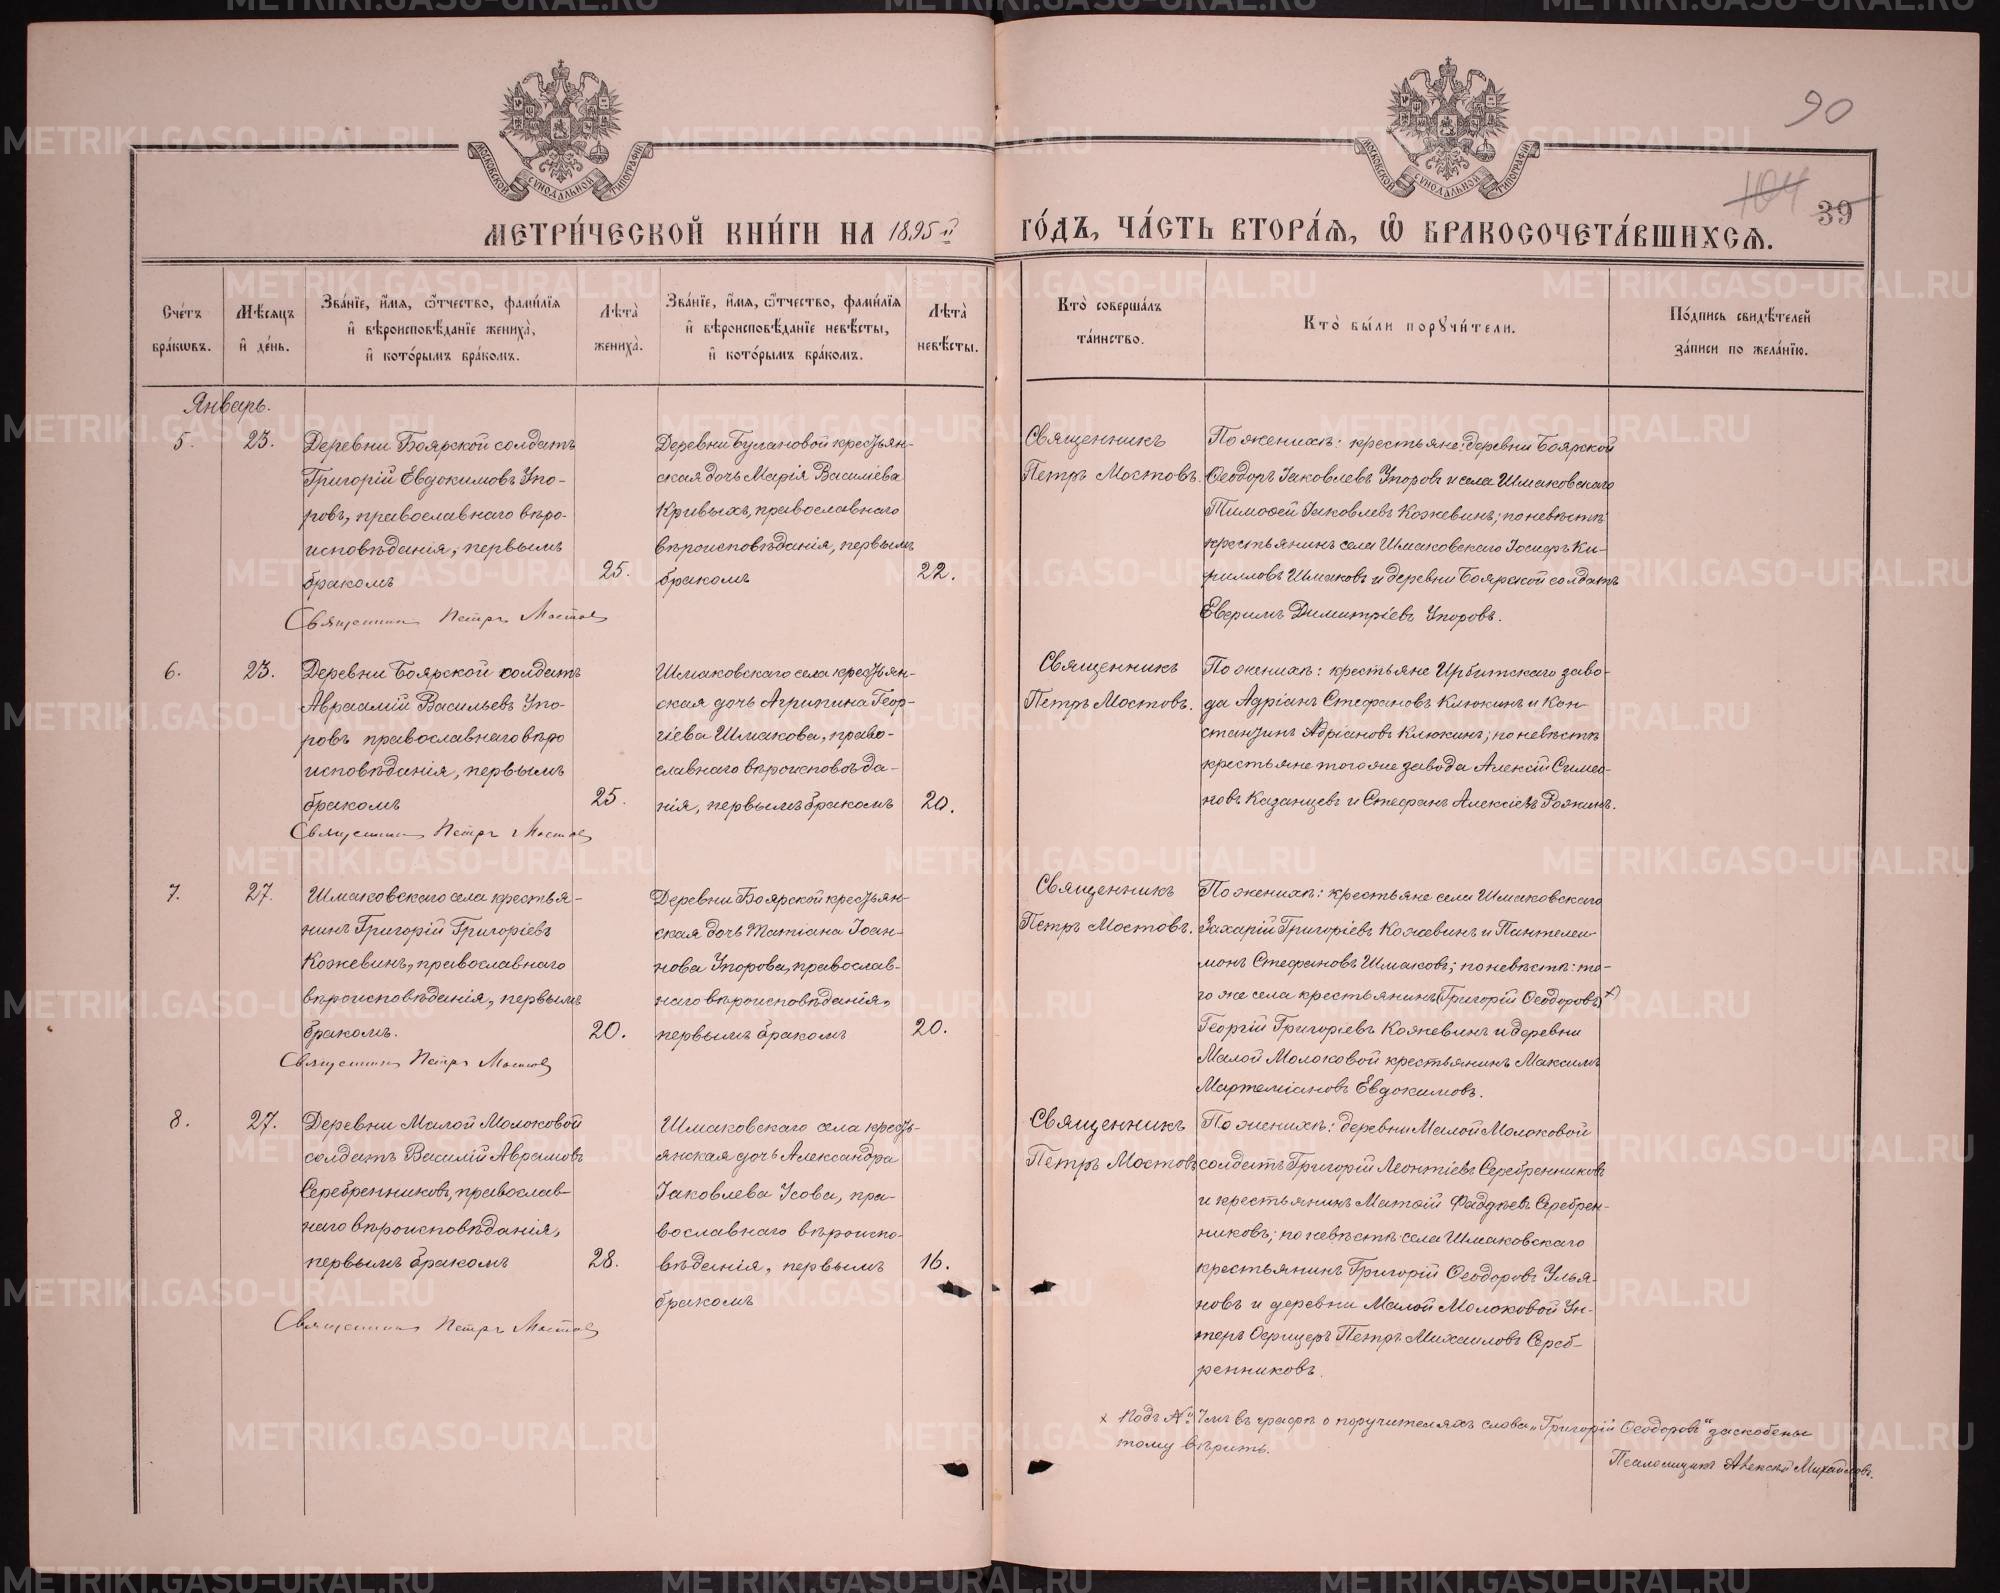 90
104
39
МОСКОВСКОЙ СѴНОДАЛЬНОЙ ТИПОГРАФІИ
МОСКОВСКОЙ СѴНОДАЛЬНОЙ ТИПОГРАФІИ
МЕТРИ́ЧЕСКОЙ КНИ́ГИ НА 1895й ГО́ДЪ, ЧА́СТЬ ВТОРА́Ѧ, Ѽ БРАКОСОЧЕТА́ВШИХСѦ.
Сче́тъ бра́кѡвъ.
Мѣ́сѧцъ и҆ де́нь.
Зва́нїе, и҆́мѧ, ѻ҆́тчество, фами́лїѧ
и҆ вѣроисповѣ́данїе жениха̀,
и҆ кото́рымъ бра́комъ.
Лѣ́та жениха̀.
Зва́нїе, и҆́мѧ, ѻ҆́тчество, фами́лїѧ
и҆ вѣроисповѣ́данїе невѣ́сты,
и҆ кото́рымъ бра́комъ.
Лѣ́та невѣ́сты.
Кто̀ соверша́лъ
та́инство.
Кто̀ бы́ли порꙋчи́тели.
По́дпись свидѣ́телей
за́писи по жела́нїю.
Январь.
5.
23.
Деревни Боярской солдатъ
Григорій Евдокимовъ Упо-
ровъ, православнаго вѣро-
исповѣданія, первымъ
бракомъ
25.
Священникъ Петръ Мостовъ
Деревни Булановой крестьян-
ская дочь Марія Василіева
Кривыхъ, православнаго
вѣроисповѣданія, первымъ
бракомъ
22.
Священникъ
Петръ Мостовъ.
По женихѣ: крестьяне: деревни Боярской
Ѳеодоръ Іаковлевъ Упоровъ и села Шмаковскаго
Тимоѳей Іаковлевъ Кожевинъ; по невѣстѣ
крестьянинъ села Шмаковскаго Іосифъ Ки-
рилловъ Шмаковъ и деревни Боярской солдатъ
Еверимъ Димитріевъ Упоровъ.
6.
23.
Деревни Боярской солдатъ
Авраамій Васильевъ Упо-
ровъ православнаго вѣро
исповѣданія, первымъ
бракомъ
25.
Священникъ Петръ Мостовъ
Шмаковскаго села крестьян-
ская дочь Агрипина Геор-
гіева Шмакова, право-
славнаго вѣроисповѣда-
нія, первымъ бракомъ
20.
Священникъ
Петръ Мостовъ.
По женихѣ: крестьяне Ирбитскаго заво-
да Адріанъ Стефановъ Клюкинъ и Кон-
стантинъ Адріановъ Клюкинъ; по невѣстѣ
крестьяне того же завода Алексѣй Симео-
новъ Казанцевъ и Стефанъ Алексіевъ Рожинъ.
7.
27.
Шмаковскаго села крестья-
нинъ Григорій Григоріевъ
Кожевинъ, православнаго
вѣроисповѣданія, первымъ
бракомъ.
20.
Священникъ Петръ Мостовъ
Деревни Боярской крестьян-
ская дочь Татіана Іоан-
нова Упорова, православ-
наго вѣроисповѣданія,
первымъ бракомъ
20.
Священникъ
Петръ Мостовъ.
По женихѣ: крестьяне села Шмаковскаго
Захарій Григоріевъ Кожевинъ и Пантелеи-
монъ Стефановъ Шмаковъ; по невѣстѣ: то-
го же села крестьянинъ (Григорій Ѳеодоровъ) ×)
Георгій Григоріевъ Кожевинъ и деревни
Малой Молоковой крестьянинъ Максимъ
Мартеміановъ Евдокимовъ.
8.
27.
Деревни Малой Молоковой
солдатъ Василій Аврамовъ
Серебренниковъ, православ-
наго вѣроисповѣданія,
первымъ бракомъ
28.
Священникъ Петръ Мостовъ
Шмаковскаго села кресть-
янская дочь Александра
Іаковлева Усова, пра-
вославнаго вѣроиспо-
вѣданія, первымъ
бракомъ
16.
Священникъ
Петръ Мостовъ
По женихѣ: деревни Малой Молоковой
солдатъ Григорій Леонтіевъ Серебренниковъ
и крестьянинъ Матѳій Фаддѣевъ Серебрен-
никовъ; по невѣстѣ: села Шмаковскаго
крестьянинъ Григорій Ѳеодоровъ Улья-
новъ и деревни Малой Молоковой Ун-
теръ Офицеръ Петръ Михаиловъ Сереб-
ренниковъ.
× Подъ № 7мъ въ графѣ о поручителяхъ слова „Григорій Ѳеодоровъ" заскоблены
тому вѣрить.
Псаломщикъ Алексѣй Михайловъ.
METRIKI.GASO-URAL.RU